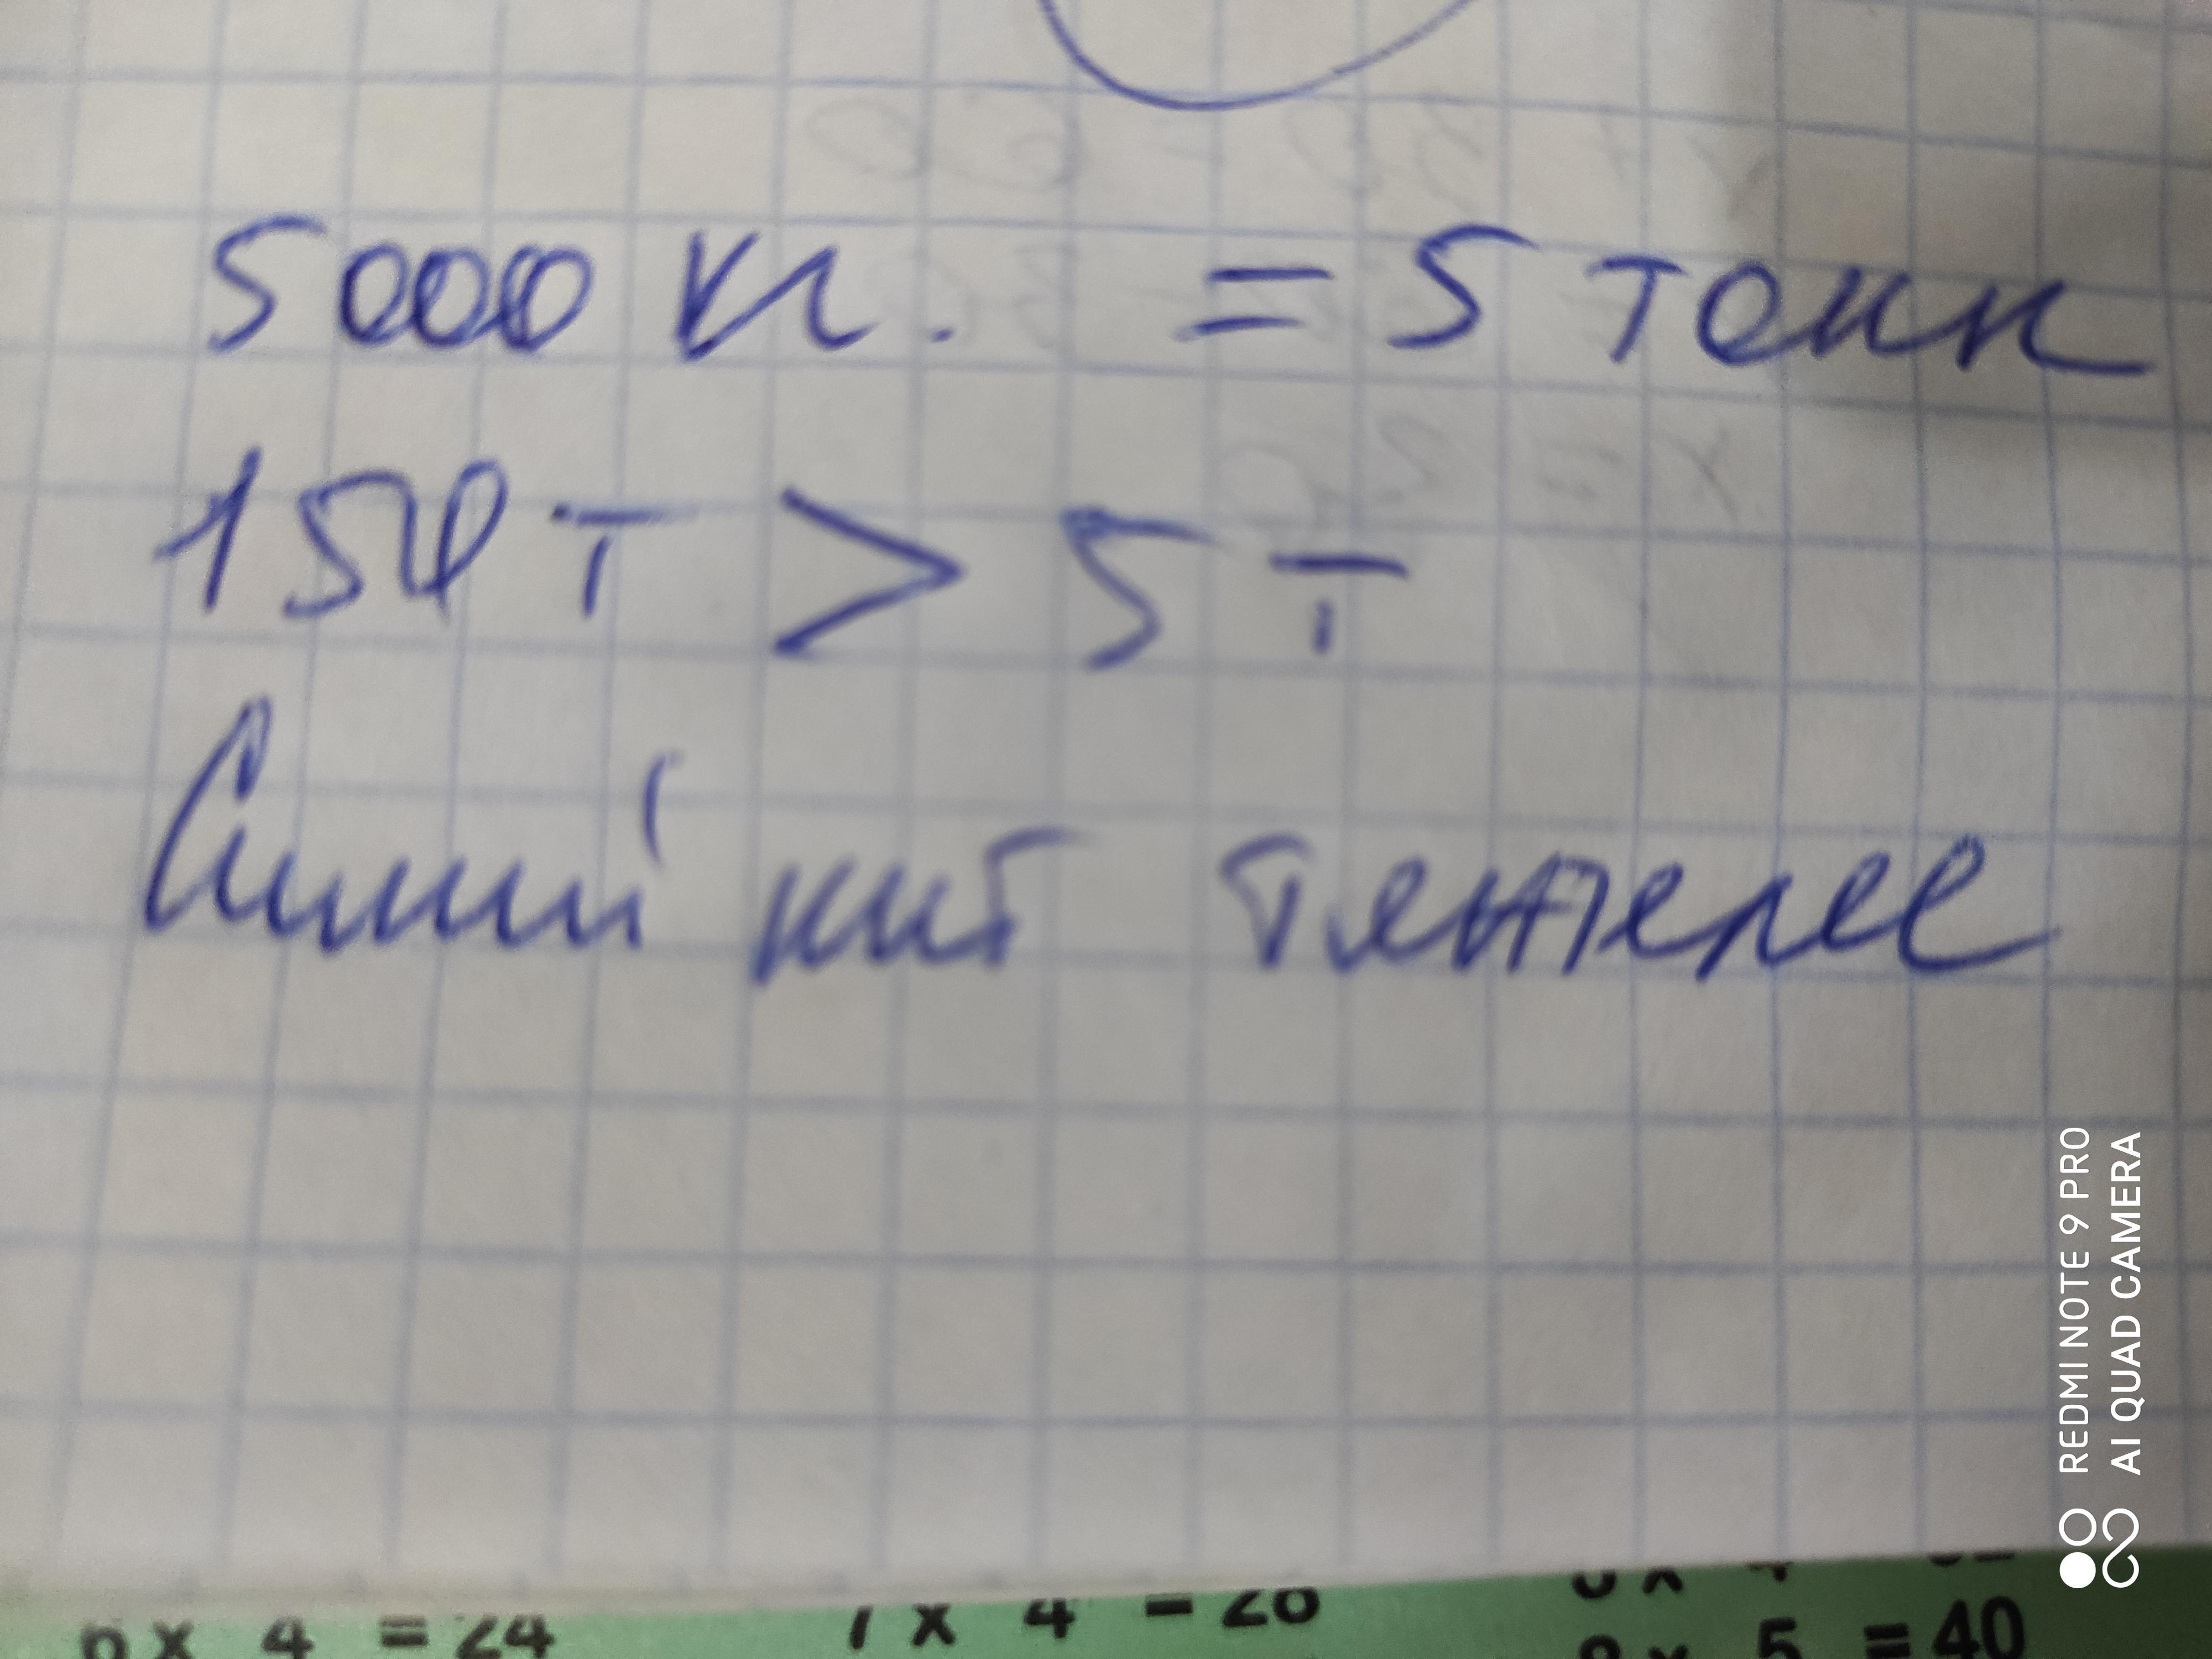 5000 кг. = 5 тонн
150 т > 5 т
Синий кит тяжелее
6 x 4 = 24
7 x 4 = 28
8 x 5 = 40
REDMI NOTE 9 PRO
AI QUAD CAMERA